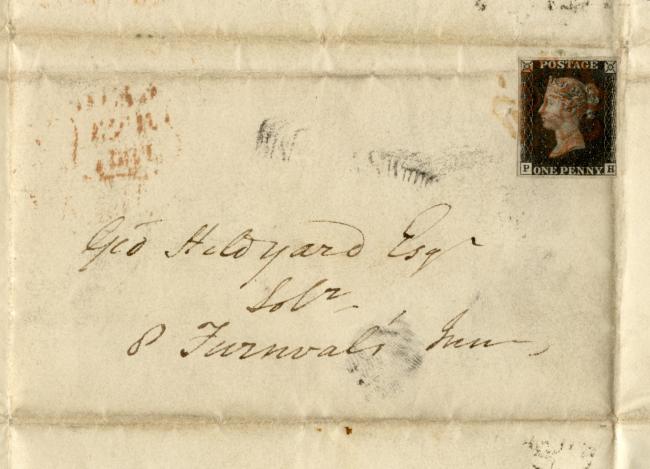 POSTAGE
P ONE PENNY H
Geo Hildyard Esqr
Solr
8 Furnval's Inn